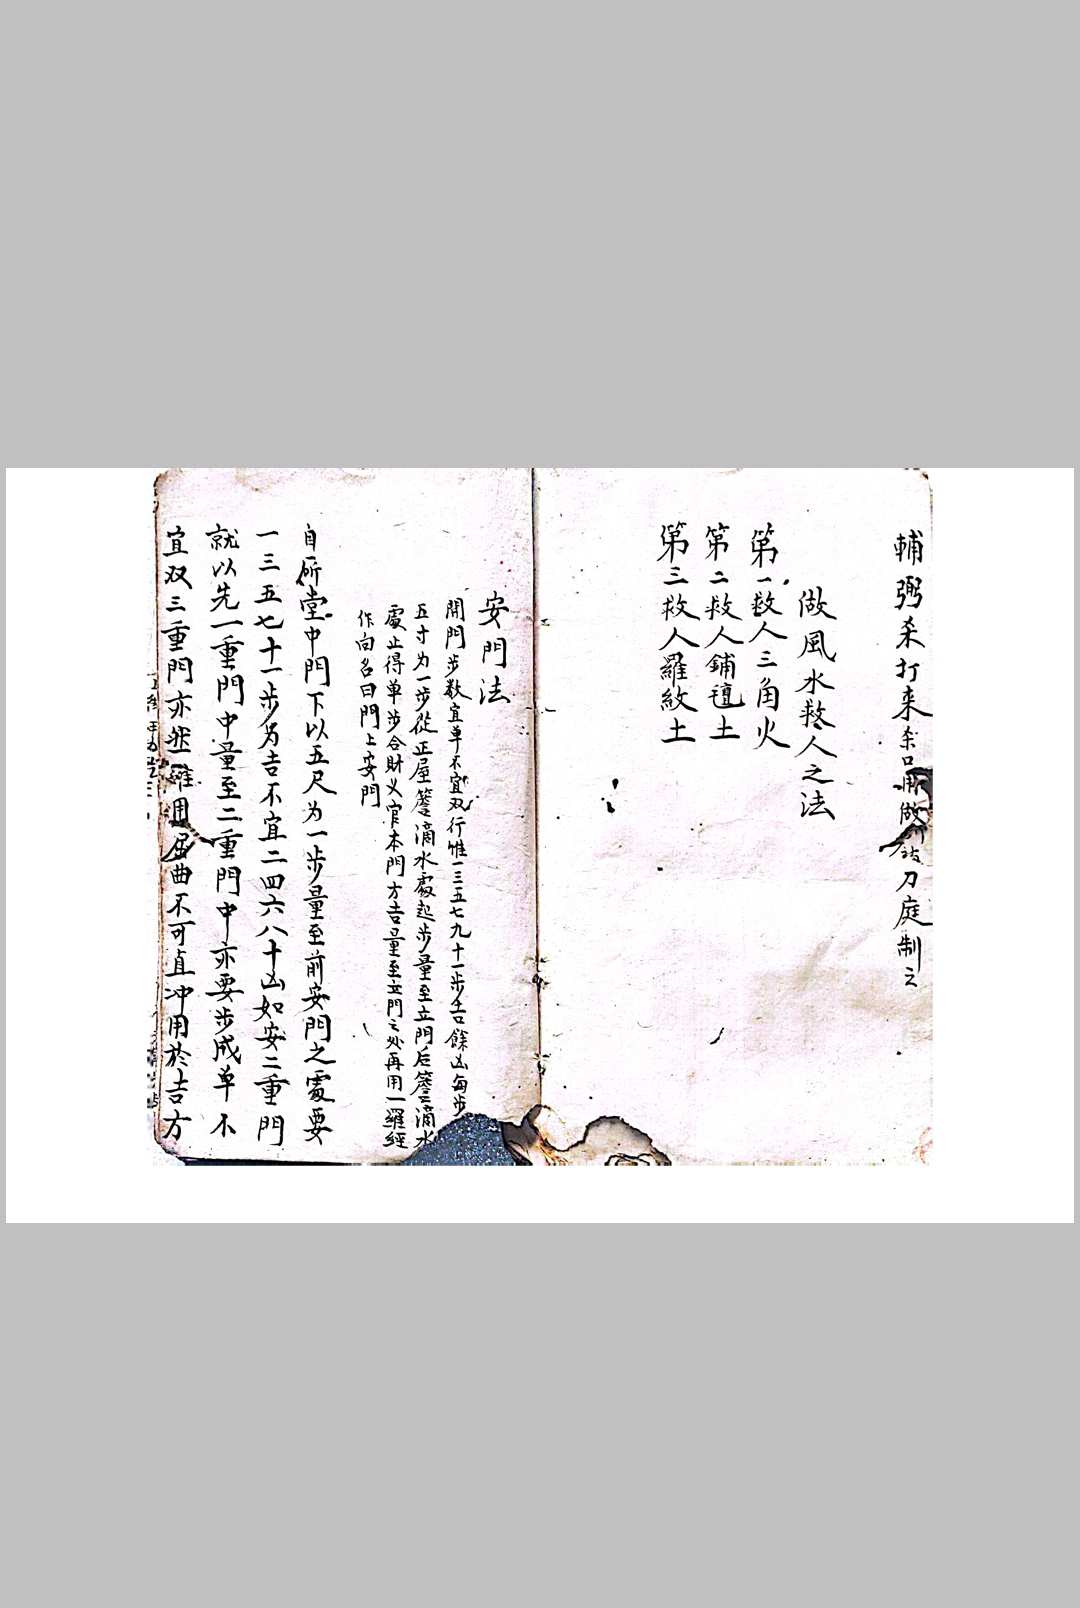 輔弼杀打来杀口開做刀庭制之
做風水救人之法
第一救人三角火
第二救人鋪氊土
第三救人羅紋土
安門法
開門步数宜单不宜双行惟一三五七九十一步吉餘凶每步
五寸为一步從正屋簷滴水處起步量至立門后簷滴水
處止得单步合財义官本門方吉量至立門之处再用一羅經
作向名曰門上安門
自所堂中門下以五尺为一步量至前安門之處要
一三五七十一步为吉不宜二四六八十凶如安二重門
就以先一重門中量至二重門中亦要步成单不
宜双三重門亦然週屈曲不可直冲用於吉方